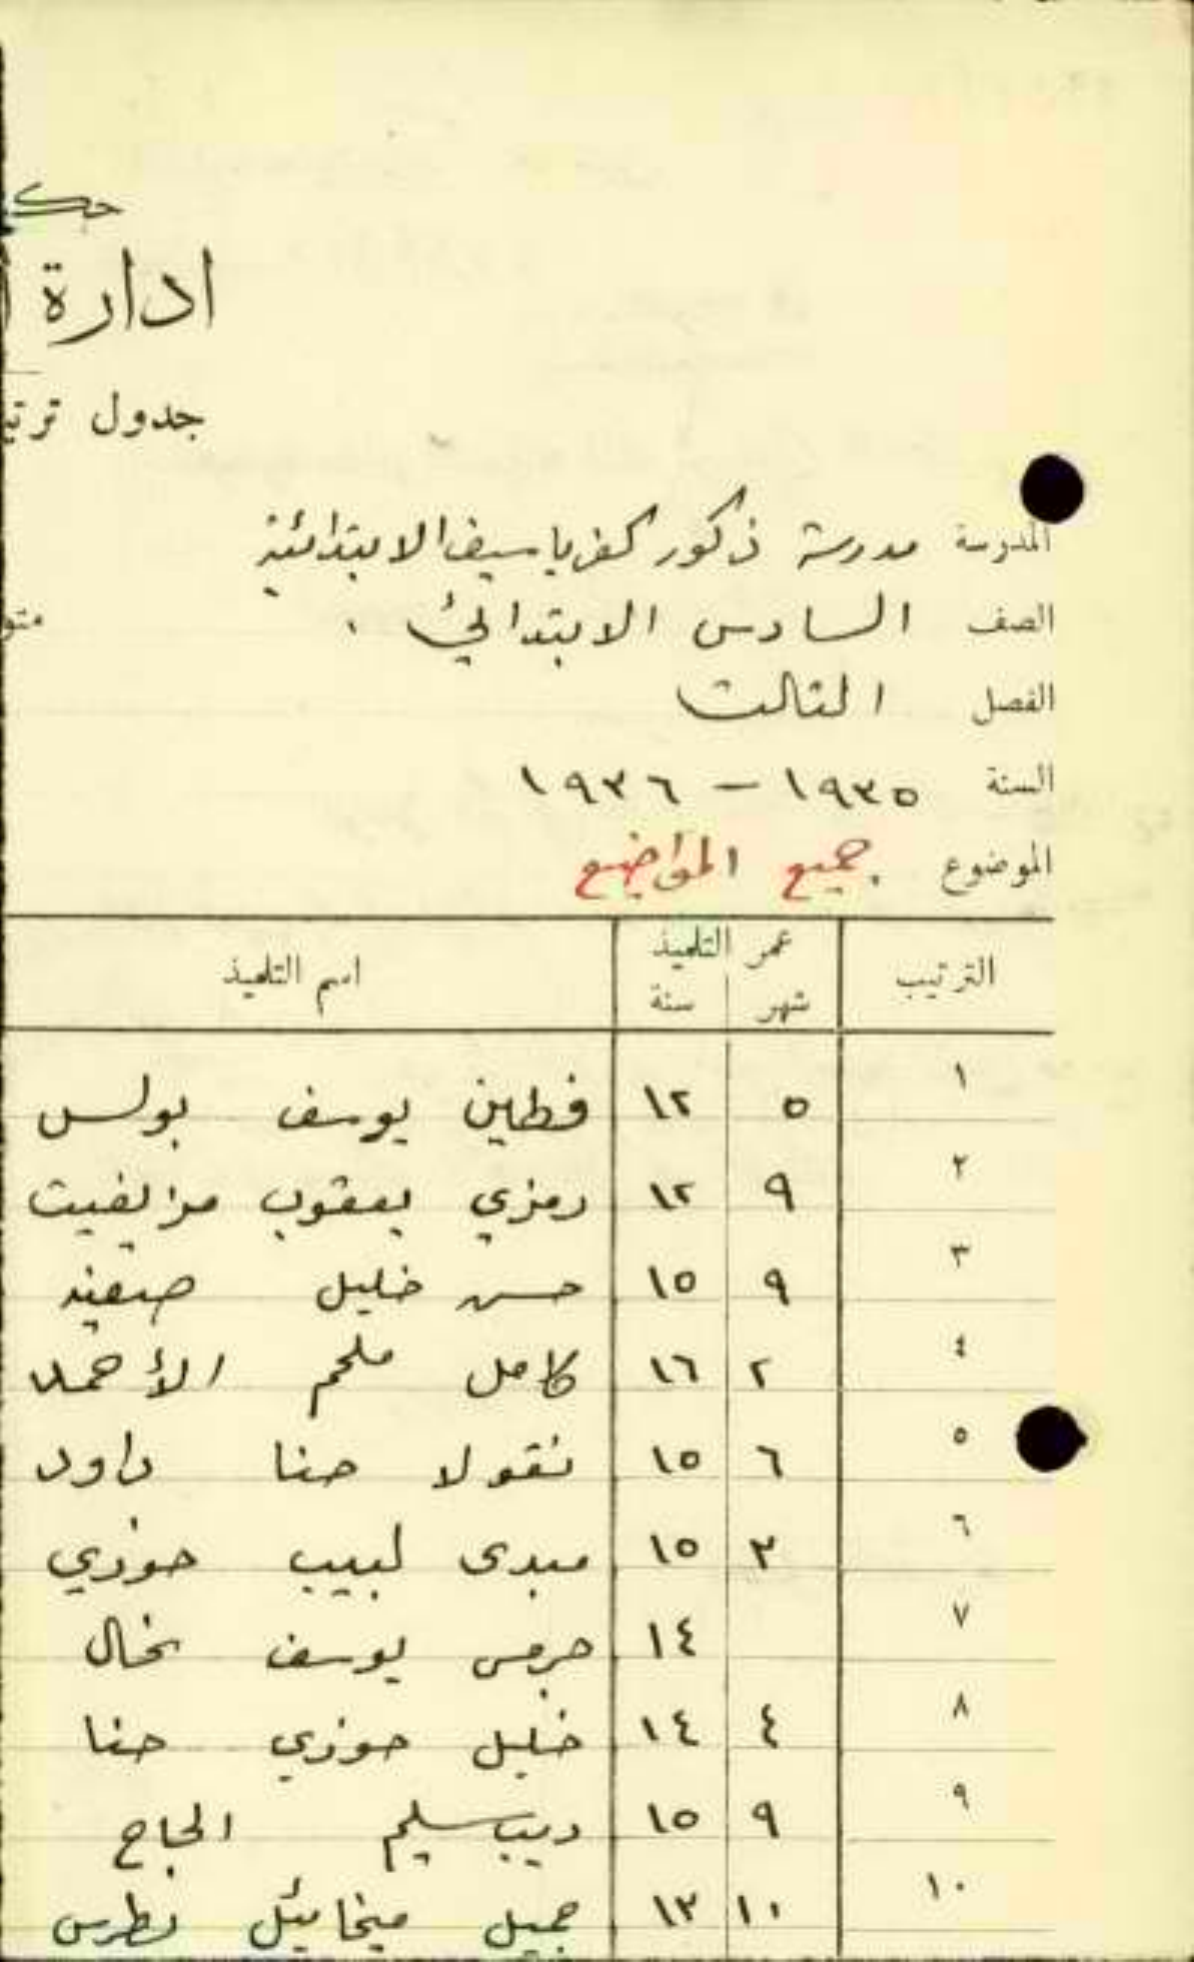 حكو
ادارة
جدول ترتي
المدرسة مدرسة ذكور كفر ياسيف الابتدائية
الصف السادس الابتدائي . متو
الفصل الثالث
السنة ١٩٣٥ - ١٩٣٦
الموضوع جميع المواضيع
الترتيب عمر التلميذ اسم التلميذ
شهر سنة
١ ٥ ١٢ فطين يوسف بولس
٢ ٩ ١٢ رمزي يعقوب
٣ ٩ ١٥ حسن خليل
٤ ٢ ١٦ كامل ملحم الأحمد
٥ ٦ ١٥ نقولا حنا داود
٦ ٣ ١٥ مبدى لبيب خوري
٧ ١٤ جرجس يوسف نخال
٨ ٤ ١٤ خليل حنا
٩ ٩ ١٥ ديب سليم الحاج
١٠ ١٠ ١٣ جميل ميخائيل بطرس